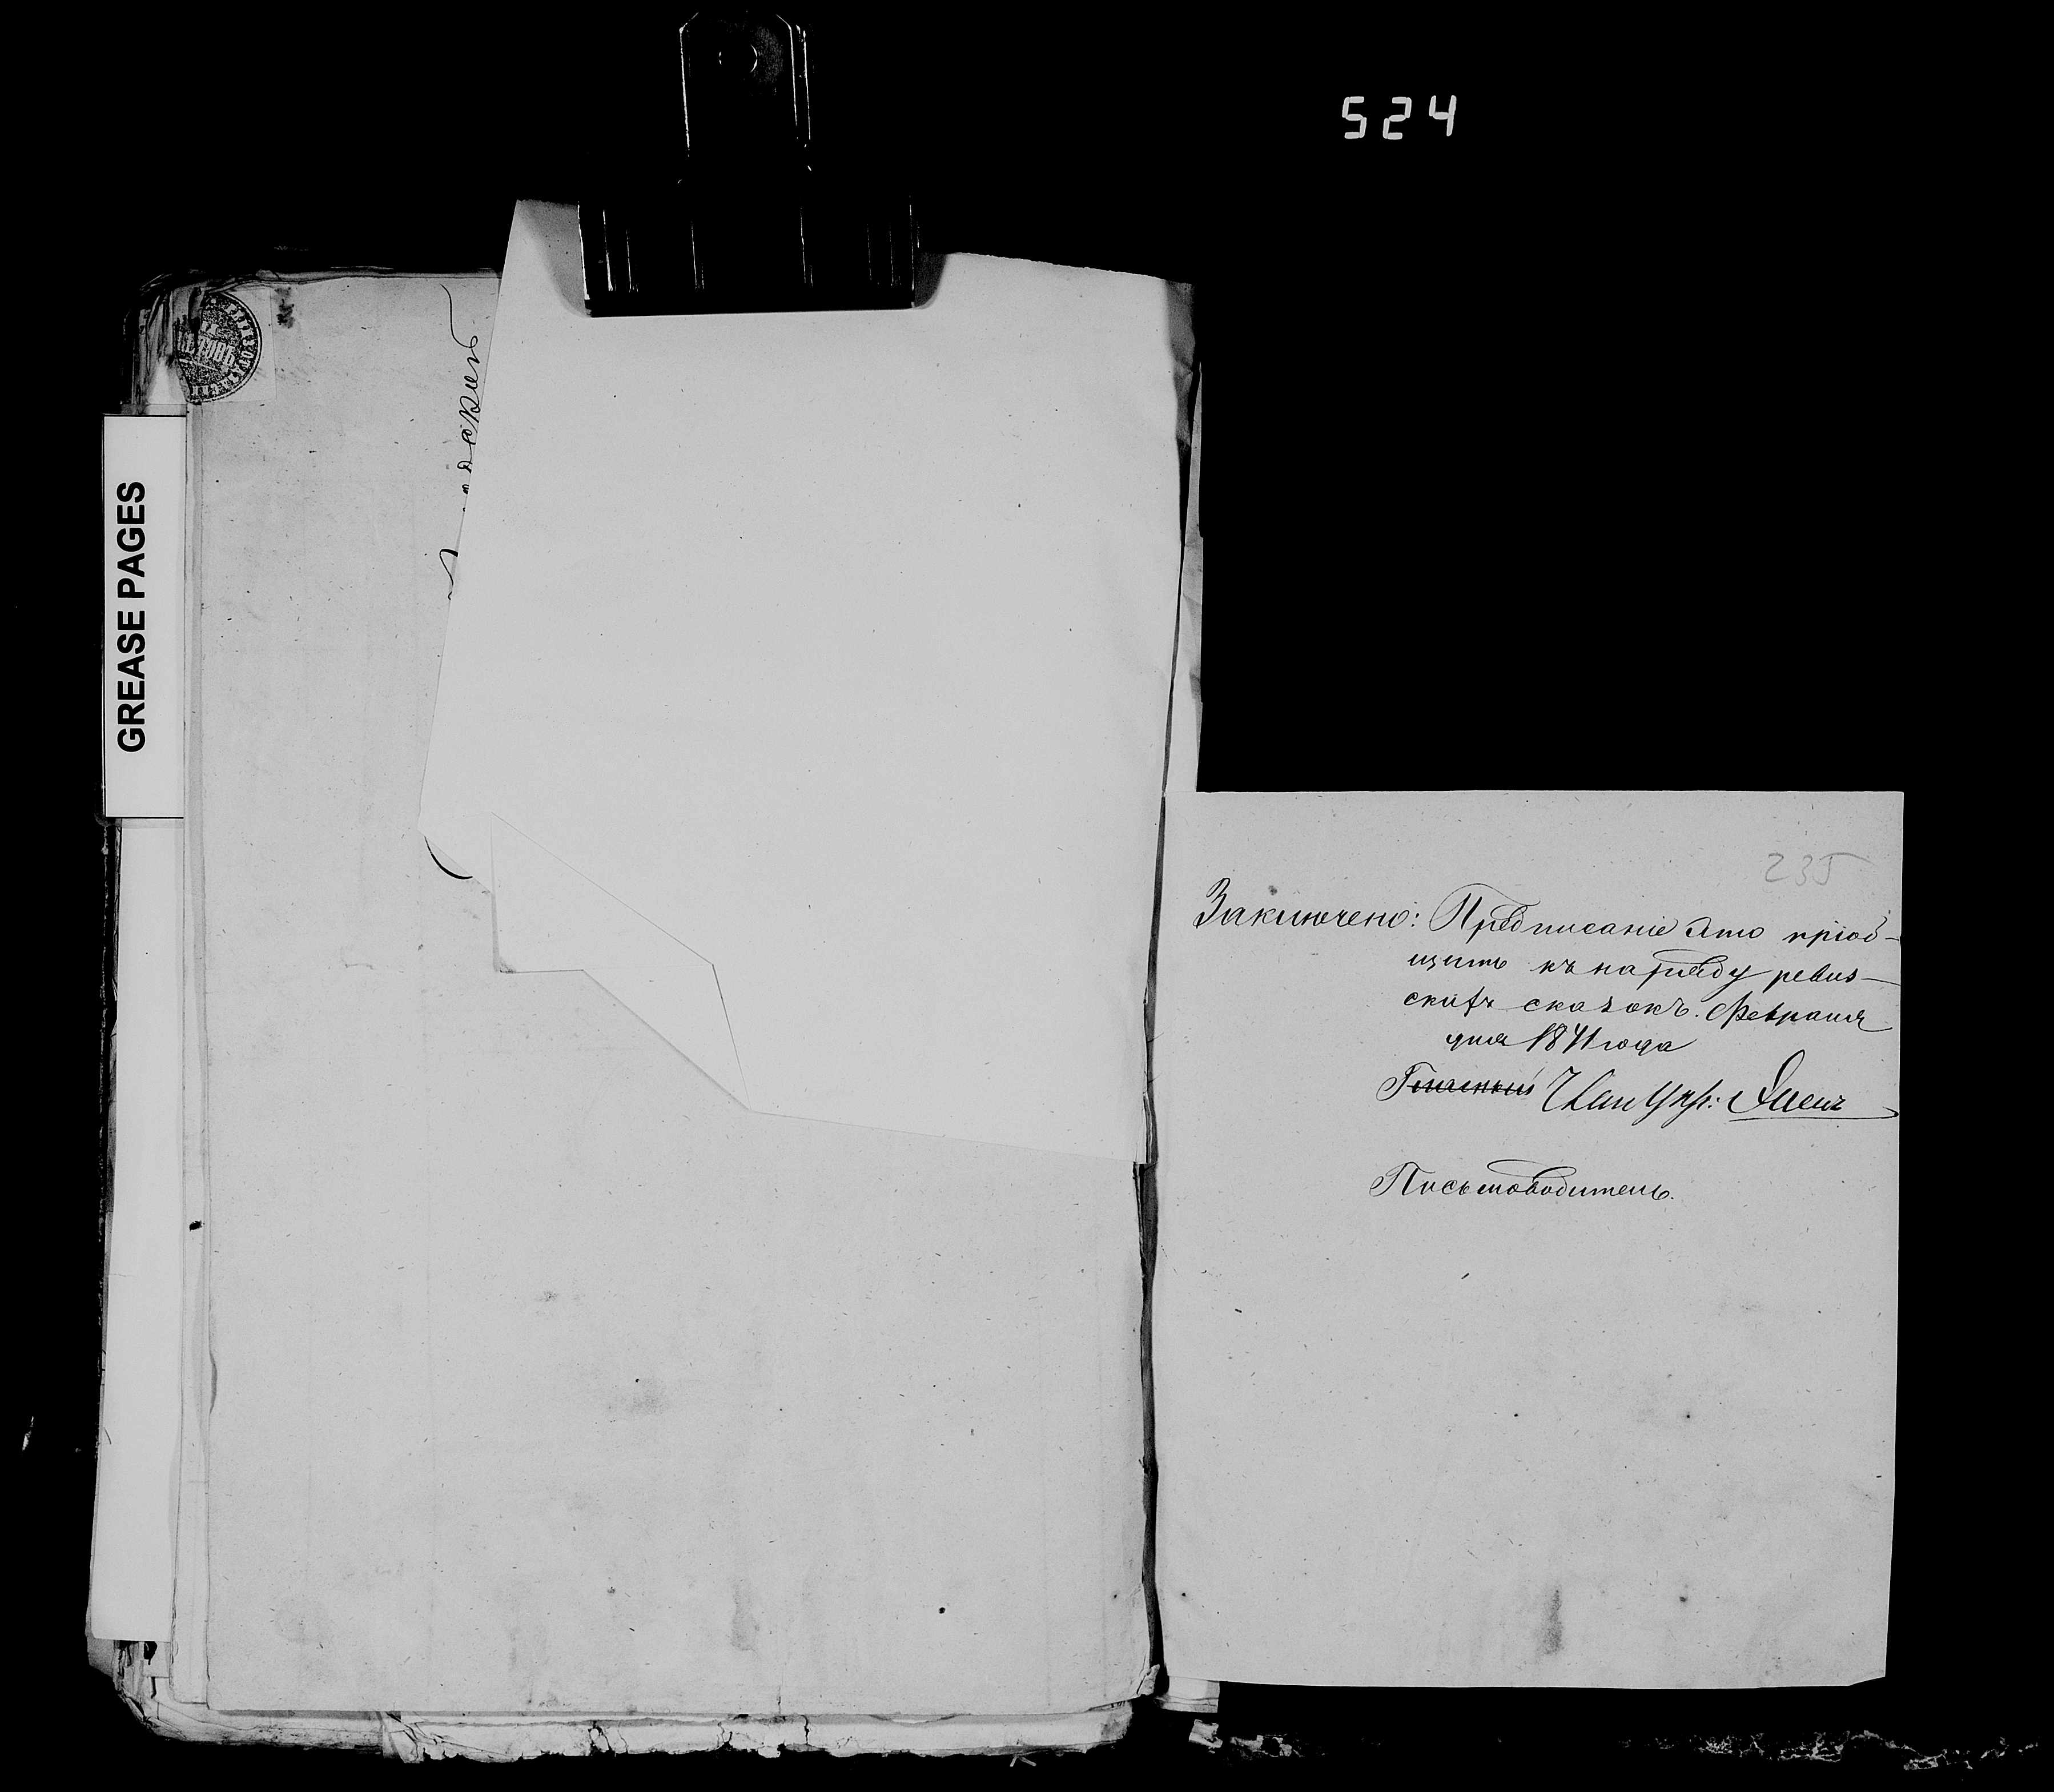 524
GREASE PAGES
235
Заключено: Предписаніе это пріоб-
щить къ наряду ревиз-
скихъ сказокъ. Февраля
дня 1841 года
Гласный
Письмоводитель.